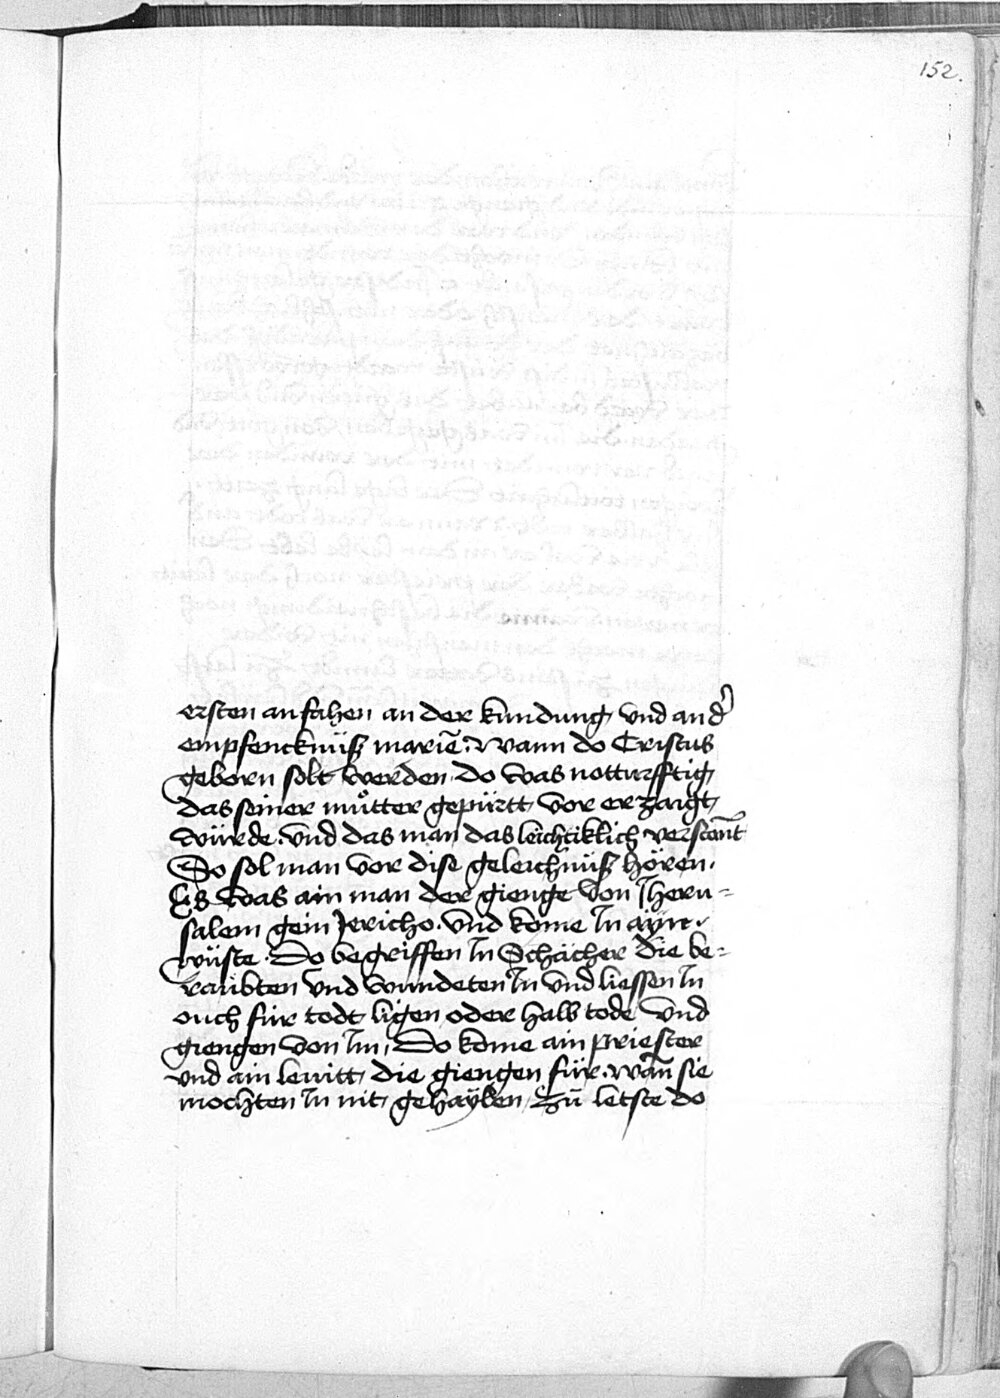 152.
ersten anfahen an der kundung vnd an d̄
empfencknüß marie͂. Wann do Cristus
geborn solt werden do was notturfftig
das seiner muͦtter gepürtt vor erzaigt
würde. vnd das man das leichtiklich verstan̄t
So sol man vor dise geleichnüß hören.
Es was ain man der gienge von Jheru=
salem gein Jericho. vnd kome In ayne
wüste. Do begriffen In Schächer die be=
raubten vnd wundeten In vnd liessen In
ouch für todt ligen oder halb tode vnd
giengen von Im, Do kome ain priester
vnd ain lewitt die giengen für. wan̄ sie
mochten In nit gehaylen, Zu letste do